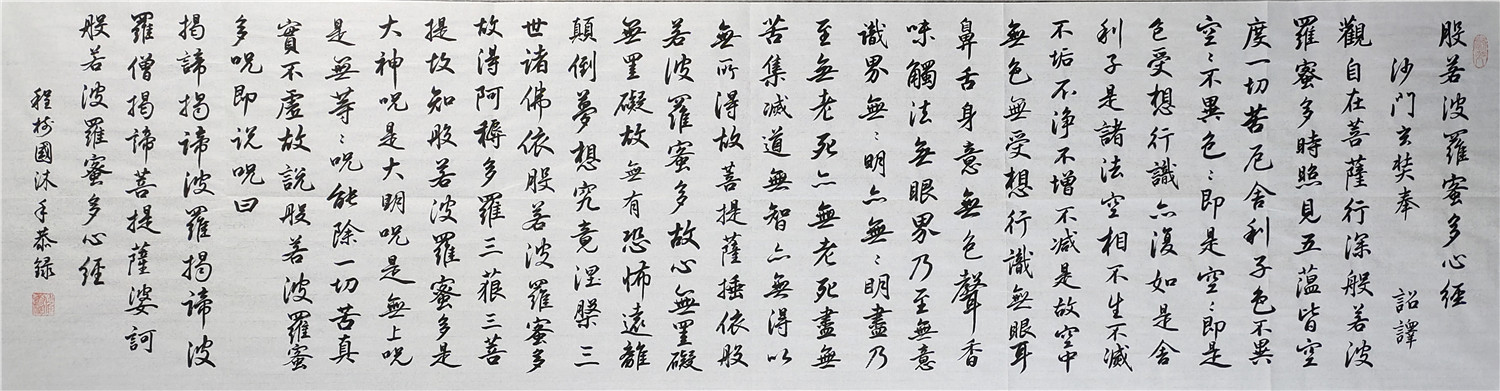 般若波羅蜜多心經
沙門玄奘奉 詔譯
觀自在菩薩行深般若波
羅蜜多時照見五蕰皆空
度一切苦厄舍利子色不異
空空不異色色即是空空即是
色受想行識亦復如是舍
利子是諸法空相不生不滅
不垢不淨不增不减是故空中
無色無受想行識無眼耳
鼻舌身意無色聲香
味觸法無眼界乃至無意
識界無無明亦無無明盡乃
至無老死亦無老死盡無
苦集滅道無智亦無得以
無所得故菩提薩埵依般
若波羅蜜多故心無罣礙
無罣礙故無有恐怖遠離
顛倒夢想究竟涅槃三
世諸佛依般若波羅蜜多
故得阿耨多羅三藐三菩
提故知般若波羅蜜多是
大神呪是大明呪是無上呪
是無等等呪能除一切苦真
實不虛故說般若波羅蜜
多呪即说呪曰
揭諦揭諦波羅揭諦波
羅僧揭諦菩提薩婆訶
般若波羅蜜多心經
程樹國沐手恭録